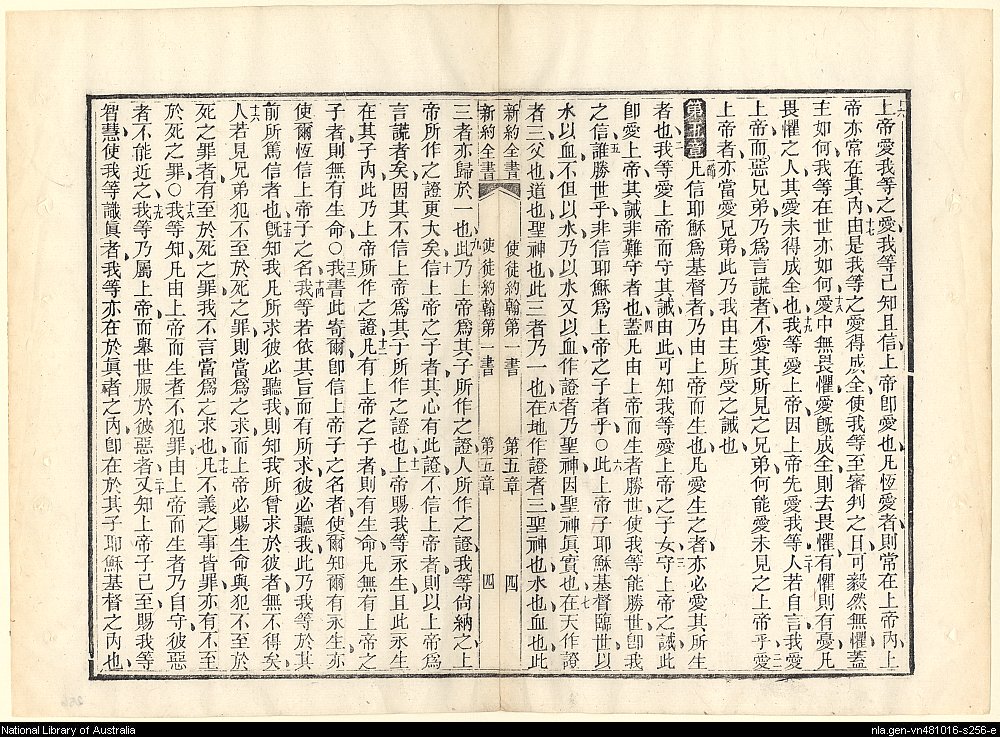 十六
上帝愛我等之愛我等已知且信上帝卽愛也凡恆愛者則常在上帝內上
帝亦常在其內十七由是我等之愛得成全使我等至審判之日可毅然無懼蓋
主如何我等在世亦如何十八愛中無畏懼愛旣成全則去畏懼有懼則有憂凡
畏懼之人其愛未得成全也十九我等愛上帝因上帝先愛我等二十人若自言我愛
上帝而惡兄弟乃爲言謊者不愛其所見之兄弟何能愛未見之上帝乎二一愛
上帝者亦當愛兄弟此乃我由主所受之誡也
第五章一節凡信耶穌爲基督者乃由上帝而生也凡愛生之者亦必愛其所生
者也二我等愛上帝而守其誡由此可知我等愛上帝之子女三守上帝之誡此
卽愛上帝其誡非難守者也四蓋凡由上帝而生者勝世使我等能勝世卽我
之信五誰勝世乎非信耶穌爲上帝之子者乎〇六此上帝子耶穌基督臨世以
水以血不但以水乃以水又以血作證者乃聖神因聖神眞實也七在天作證
者三父也道也聖神也此三者乃一也八在地作證者三聖神也水也血也此
新約全書 使徒約翰第一書 第五章 四
新約全書 使徒約翰第一書 第五章 四
三者亦歸於一也九此乃上帝爲其子所作之證人所作之證我等尙納之上
帝所作之證更大矣十信上帝之子者其心有此證不信上帝者則以上帝爲
言謊者矣因其不信上帝爲其子所作之證也十一上帝賜我等永生且此永生
在其子內此乃上帝所作之證十二凡有上帝之子者則有生命凡無有上帝之
子者則無有生命〇十三我書此寄爾卽信上帝子之名者使爾知爾有永生亦
使爾恆信上帝子之名十四我等若依其旨而有所求彼必聽我此乃我等於其
前所篤信者也十五旣知我凡所求彼必聽我則知我所曾求於彼者無不得矣
十六人若見兄弟犯不至於死之罪則當爲之求而上帝必賜生命與犯不至於
死之罪者有至於死之罪我不言當爲之求也十七凡不義之事皆罪亦有不至
於死之罪〇十八我等知凡由上帝而生者不犯罪由上帝而生者乃自守彼惡
者不能近之十九我等乃屬上帝而舉世服於彼惡者二十又知上帝子已至賜我等
智慧使我等識眞者我等亦在於眞者之內卽在於其子耶穌基督之內也
National Library of Australia
nla.gen-vn481016-s256-e